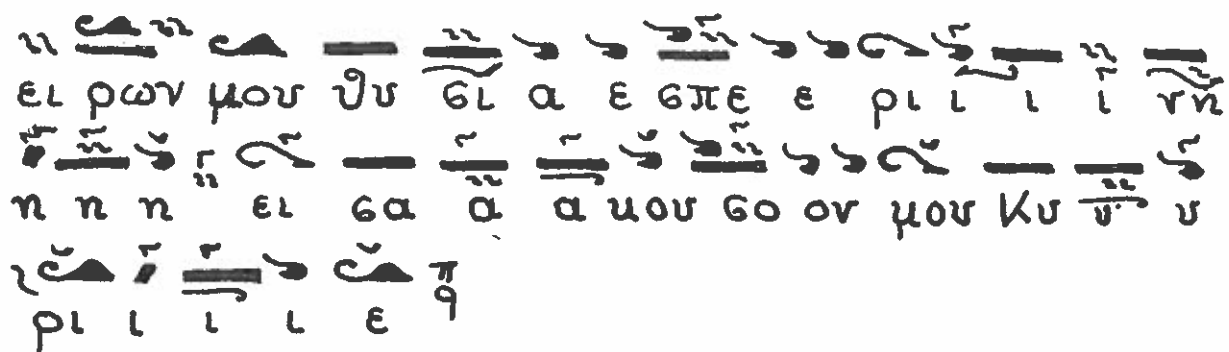 ει ρων μου θυ σι α ε σπε ε ρι ι ι ι νη
η η η ει σα α α κου σο ον μου Κυ υ υ
ρι ι ι ι ε π q